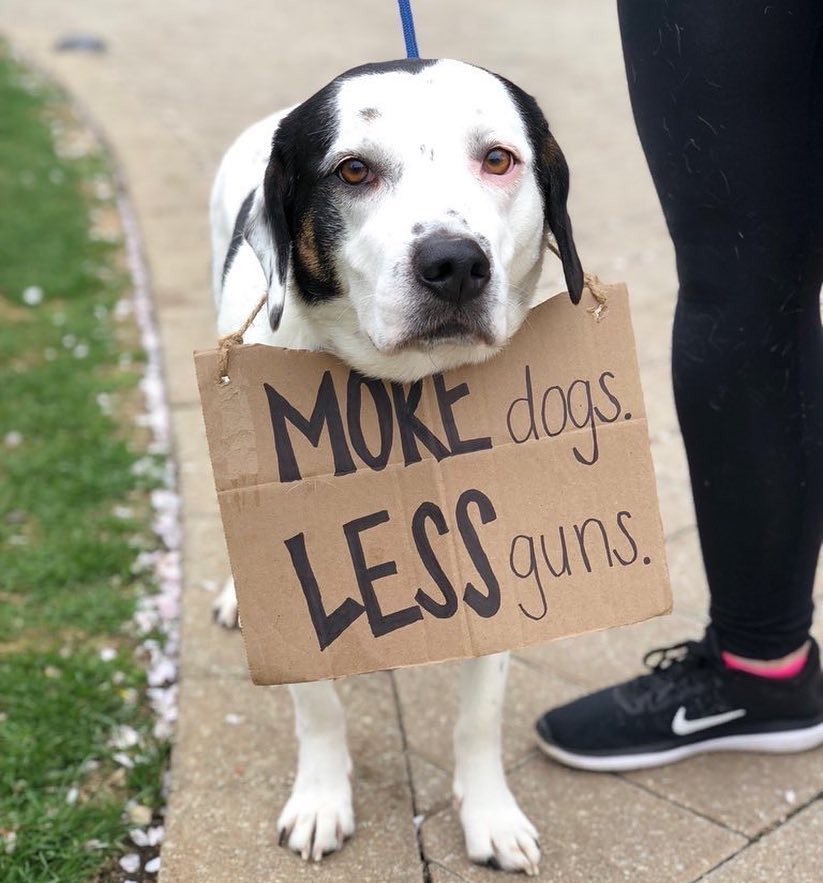 MORE dogs.
LESS guns.